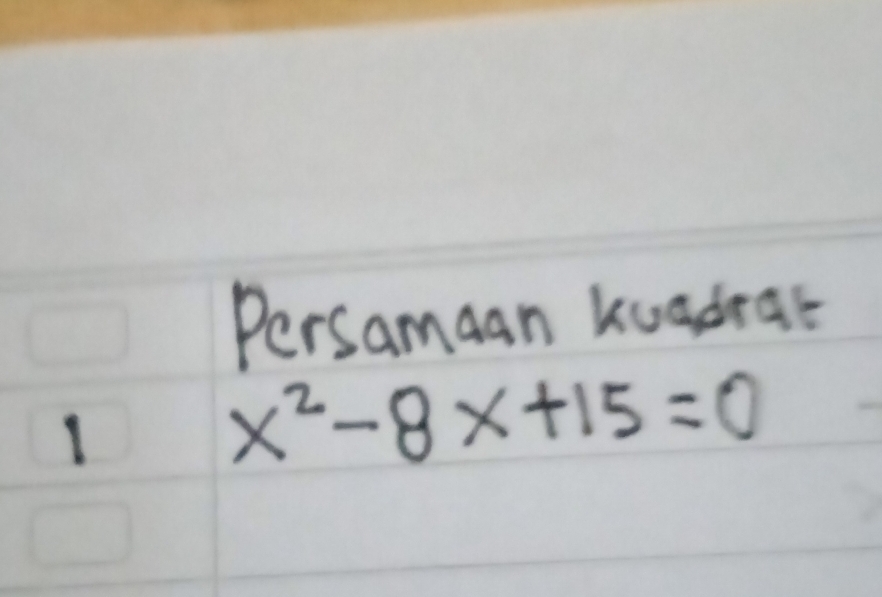 Persamaan kuadrat
1 x²-8x+15=0